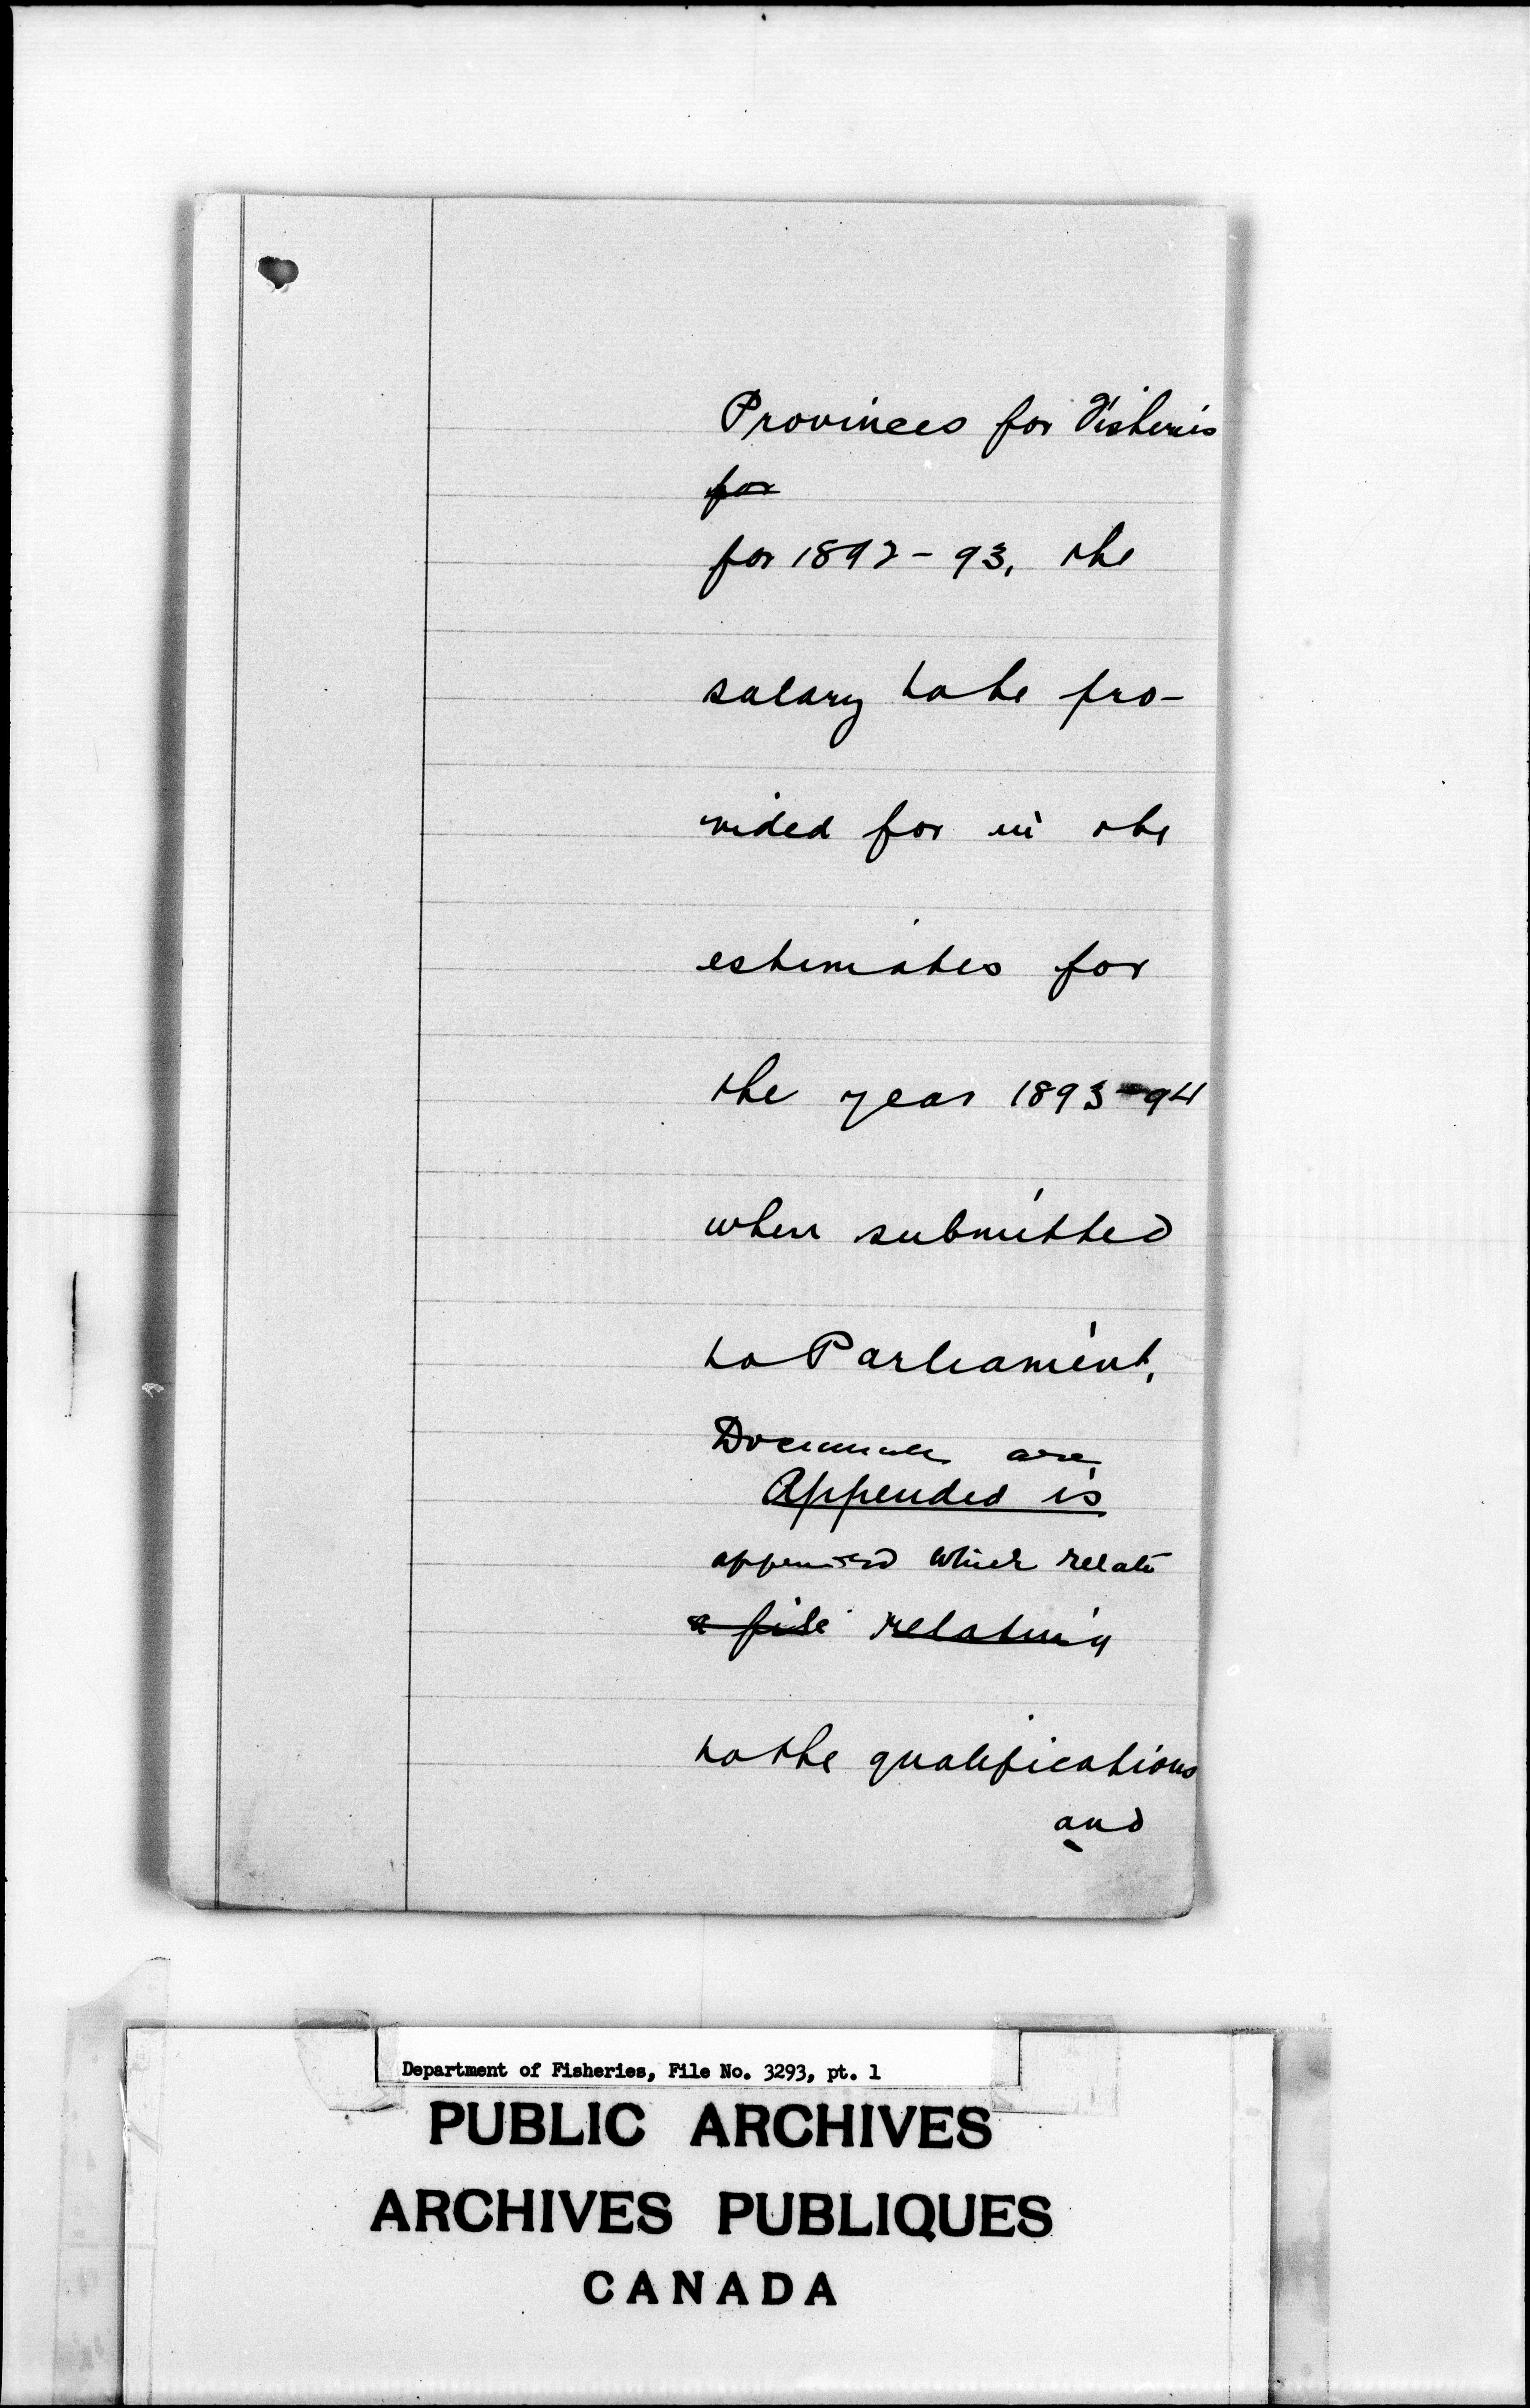 Provinces for Fisheries
for
for 1892-93, the
salary to be pro-
vided for in the
estimates for
the year 1893-94
when submitted
to Parliament.
Documents are
Appended is
appended which relate
a file relating
to the qualifications
and
Department of Fisheries, File No. 3293, pt. 1
PUBLIC ARCHIVES
ARCHIVES PUBLIQUES
CANADA